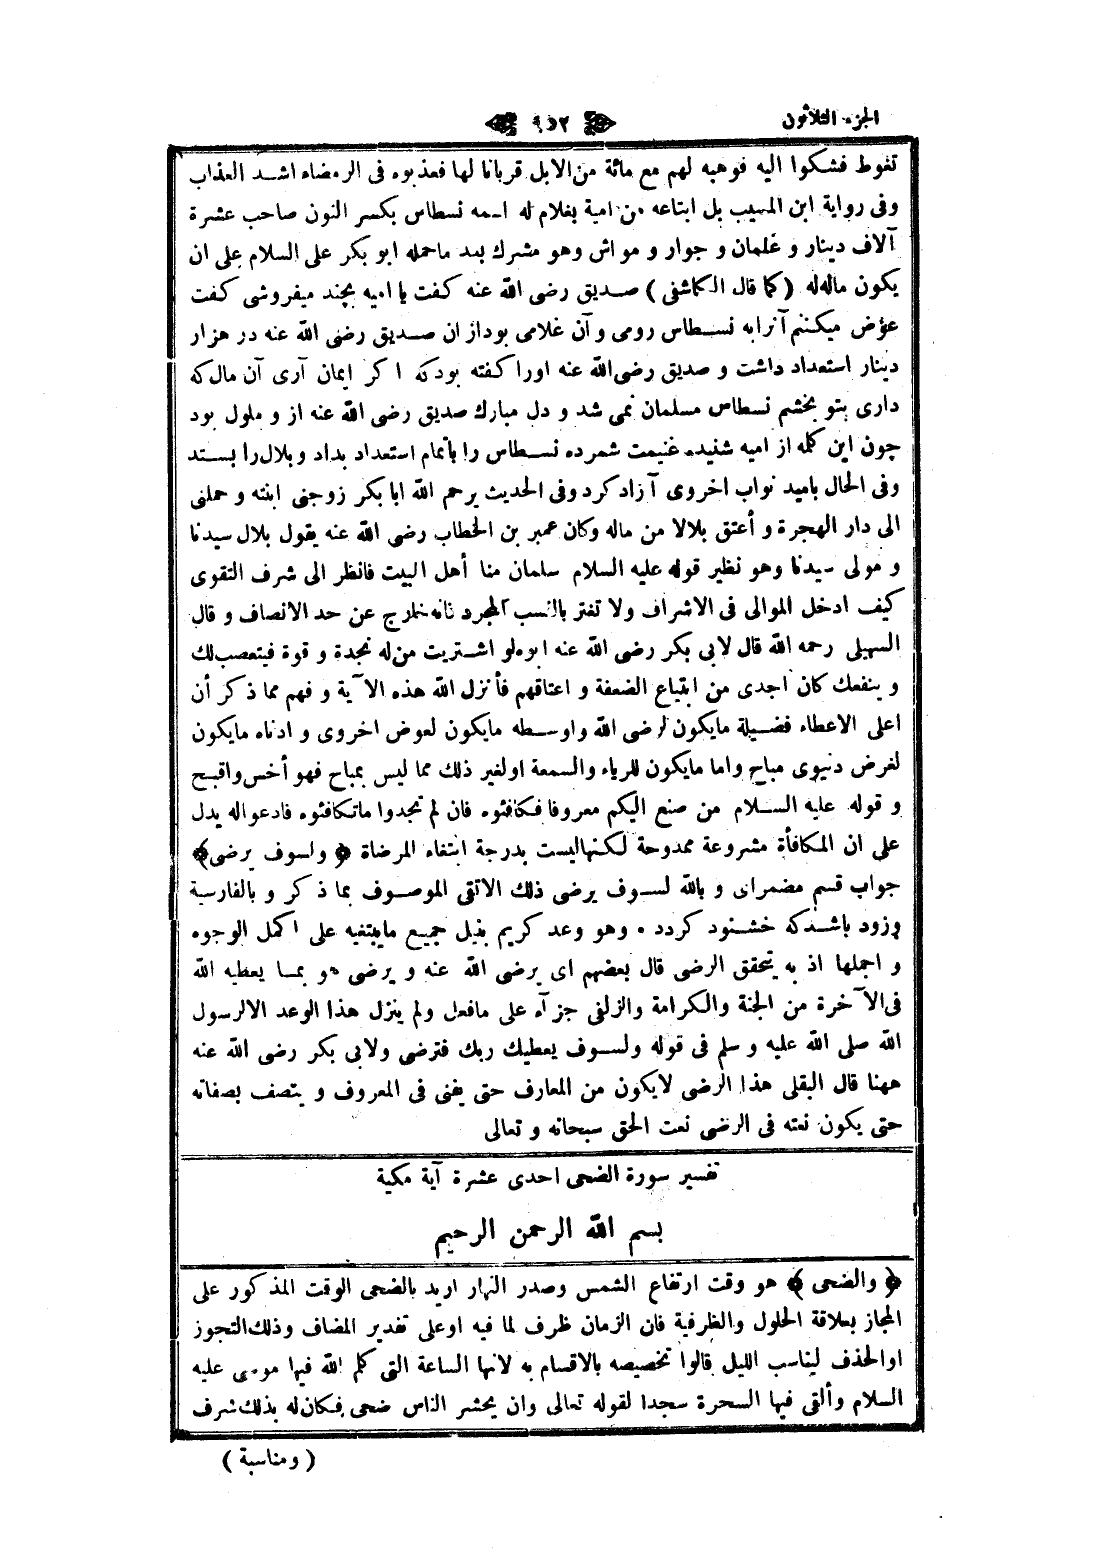 الجزء الثلاثون
٤٥٢
تغوط فشكوا اليه فوهبه لهم مع مائة من الابل قربانا لها فعذبوه فى الرمضاء اشد العذاب
وفى رواية ابن المسيب بل ابتاعه من امية بغلام له اسمه نسطاس بكسر النون صاحب عشرة
آلاف دينار و غلمان و جوار و مواش وهو مشرك بعد ماحمله ابو بكر على السلام على ان
يكون ماله له (كما قال الكاشفى) صديق رضى الله عنه كفت يا اميه بچند ميفروشى كفت
عوض ميكنم آنرا به نسطاس رومى و آن غلامى بود از ان صديق رضى الله عنه ده هزار
دينار استعداد داشت و صديق رضى الله عنه اورا كفته بود كه اكر ايمان آرى آن مال كه
دارى بتو بخشم نسطاس مسلمان نمى شد و دل مبارك صديق رضى الله عنه ازو ملول بود
چون اين كلمه از اميه شنيد غنيمت شمرده نسطاس را باتمام استعداد بداد و بلال را بستد
وفى الحال باميد ثواب اخروى آزاد كرد وفى الحديث يرحم الله ابا بكر زوجنى ابنته و حملنى
الى دار الهجرة و أعتق بلالا من ماله وكان عمر بن الخطاب رضى الله عنه يقول بلال سيدنا
و مولى سيدنا وهو نظير قوله عليه السلام سلمان منا أهل البيت فانظر الى شرف التقوى
كيف ادخل الموالى فى الاشراف ولا تغتر بالنسب المجرد فانه خارج عن حد الانصاف و قال
السهيلى رحمه الله قال لابى بكر رضى الله عنه ابوه لو اشتريت من له نجدة و قوة فيتعصب لك
و ينفعك كان اجدى من ابتياع الضعفة و اعتاقهم فأنزل الله هذه الآية و فهم مما ذكر أن
اعلى الاعطاء فضيلة مايكون لرضى الله واوسطه مايكون لعوض اخروى و ادناه مايكون
لغرض دنيوى مباح واما مايكون للرياء والسمعة اولغير ذلك مما ليس بمباح فهو أخس واقبح
و قوله عليه السلام من صنع اليكم معروفا فكافئوه فان لم تجدوا ماتكافئوه فادعوا له يدل
على ان المكافأة مشروعة ممدوحة لكنها ليست بدرجة ابتغاء المرضاة ﴿ ولسوف يرضى ﴾
جواب قسم مضمر اى و بالله لسوف يرضى ذلك الاتقى الموصوف بما ذكر و بالفارسية
وزود باشد كه خشنود كردد . وهو وعد كريم بنيل جميع مايبتغيه على اكمل الوجوه
و اجملها اذ به يتحقق الرضى قال بعضهم اى يرضى الله عنه و يرضى هو بما يعطيه الله
فى الآخرة من الجنة والكرامة والزلفى جزآء على مافعل ولم ينزل هذا الوعد الا لرسول
الله صلى الله عليه و سلم فى قوله ولسوف يعطيك ربك فترضى ولابى بكر رضى الله عنه
ههنا قال البقلى هذا الرضى لايكون من المعارف حتى يفنى فى المعروف و يتصف بصفاته
حتى يكون نعته فى الرضى نعت الحق سبحانه و تعالى
تفسير سورة الضحى احدى عشرة آية مكية
بسم الله الرحمن الرحيم
﴿ والضحى ﴾ هو وقت ارتفاع الشمس وصدر النهار اريد بالضحى الوقت المذكور على
المجاز بعلاقة الحلول والظرفية فان الزمان ظرف لما فيه اوعلى تقدير المضاف وذلك التجوز
اوالحذف ليناسب الليل قالوا تخصيصه بالاقسام به لانها الساعة التى كلم الله فيها موسى عليه
السلام وألقى فيها السحرة سجدا لقوله تعالى وان يحشر الناس ضحى فكان له بذلك شرف
( ومناسبة )